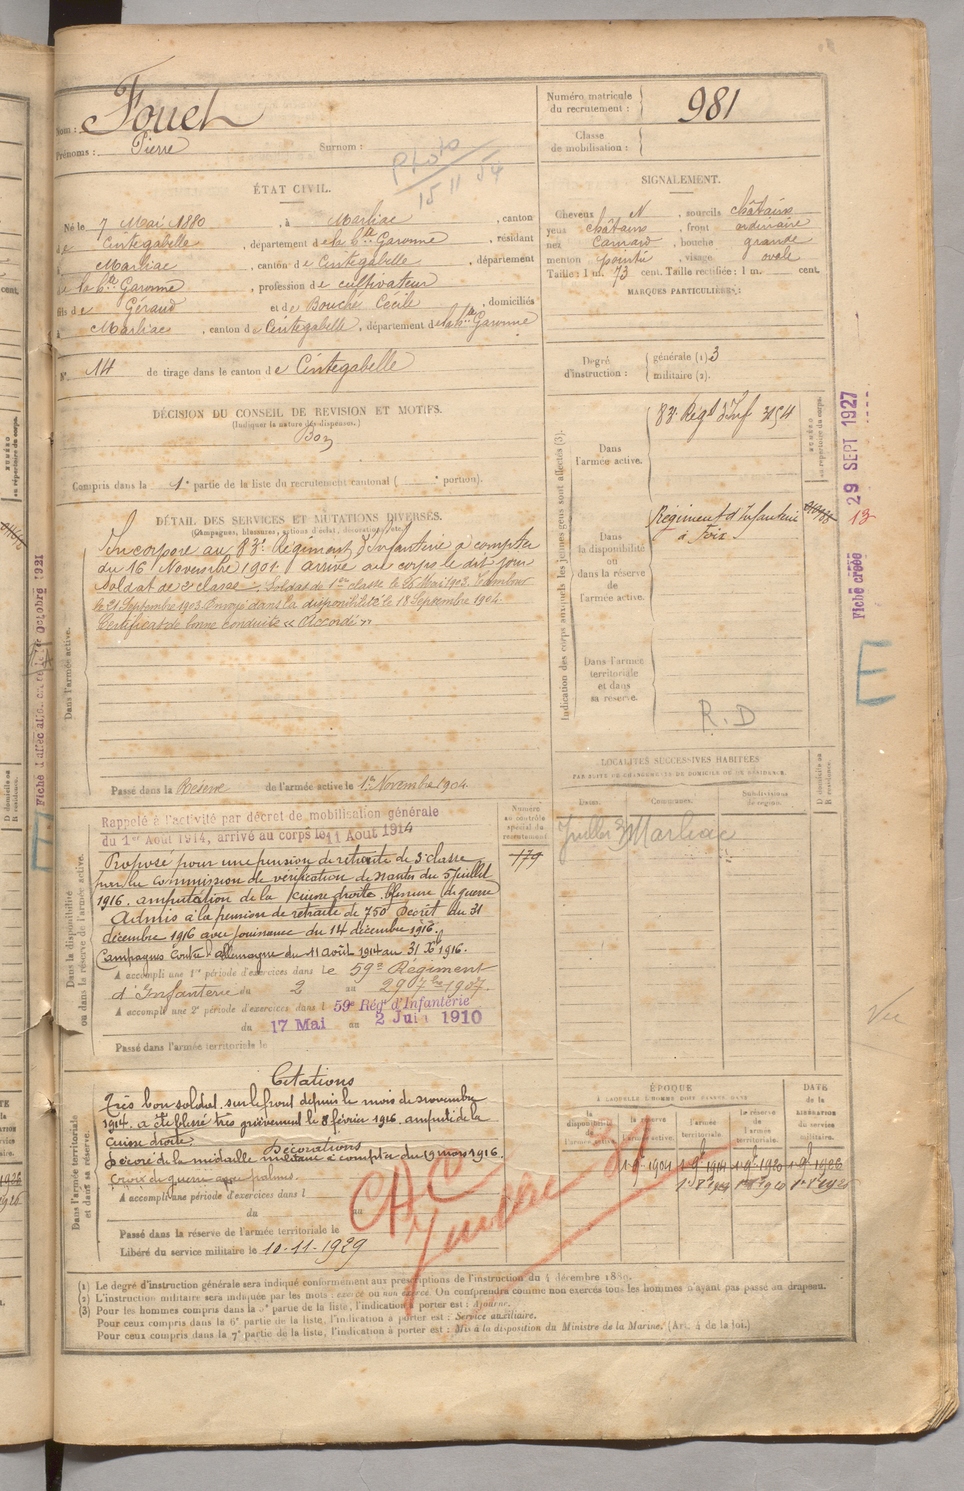 Nom : Fouet
Prénoms : Pierre Surnom :
Photo
15 11 54
ÉTAT CIVIL.
Né le 7 Mai 1880, à Marliac, canton
de Cintegabelle, département de la Hte Garonne, résidant
à Marliac, canton de Cintegabelle, département
de la Hte Garonne, profession de cultivateur
fils de Géraud et de Bouché Cécile, domiciliés
à Marliac, canton de Cintegabelle, département de la Hte Garonne
N° 14 de tirage dans le canton de Cintegabelle
DÉCISION DU CONSEIL DE REVISION ET MOTIFS.
(Indiquer la nature des dispenses.)
Bon
Compris dans la 1e partie de la liste du recrutement cantonal ( portion).
DÉTAIL DES SERVICES ET MUTATIONS DIVERSES.
(Campagnes, blessures, actions d'éclat, décorations, etc.
Incorporé au 83e Régiment d'Infanterie à compter
du 16 Novembre 1901 arrivé au corps le dit jour
soldat de 2e classe. Soldat de 1ère classe le 26 Mai 1903. Tambour
le 21 Septembre 1903. Envoyé dans la disponibilité le 18 Septembre 1904.
Certificat de bonne conduite « Accordé »
Dans l'armée active.
Passé dans la Réserve de l'armée active le 1er Novembre 1904
Rappelé à l'activité par décret de mobilisation générale
du 1er Août 1914, arrivé au corps le 11 Août 1914
Proposé pour une pension de retraite de 3e classe
par la commission de vérification de Nantes du 5 juillet
1916. amputation de la cuisse droite, blessure de guerre
Admis à la pension de retraite de 750f Décret du 31
décembre 1916 avec jouissance du 14 décembre 1916.
Campagnes contre l'allemagne du 11 août 1914 au 31 Xbre 1916.
A accompli une 1re période d'exercices dans le 59e Régiment
d'Infanterie du 2 au 29 1907.
A accompli une 2e période d'exercices dans l 59e Régt d'Infanterie
du 17 Mai au 2 Juin 1910
Passé dans l'armée territoriale le
Dans la disponibilité
ou dans la réserve de l'armée active.
Numéro
au contrôle
spécial du
recrutement
179
Citations
Très bon soldat, sur le front depuis le mois de novembre
1914. a été blessé très grièvement le 8 février 1916. amputé de la
cuisse droite.
Décorations
Décoré de la médaille militaire à compter du 19 mars 1916.
Croix de guerre avec palmes.
A accompli une période d'exercices dans l
du au
Passé dans la réserve de l'armée territoriale le
Libéré du service militaire le 10-11-1929
Dans l'armée territoriale
et dans sa réserve.
CAC
Numéro matricule
du recrutement : 981
Classe
de mobilisation :
SIGNALEMENT.
Cheveux N, sourcils châtains
yeux châtains, front ordinaire
nez Camard, bouche grande
menton pointu, visage ovale
Taille : 1 m. 73 cent. Taille rectifiée : 1 m. cent.
MARQUES PARTICULIÈRES :
Degré
d'instruction :
générale (1) 3
militaire (2).
Indication des corps auxquels les jeunes gens sont affectés (3).
Dans
l'armée active.
83e Régt d'Inf 3154
NUMÉRO
au répertoire du corps.
Dans
la disponibilité
ou
dans la réserve
de
l'armée active.
Régiment d'Infanterie
à Foix
Dans l'armée
territoriale
et dans
sa réserve.
R.D
29 SEPT 1927
Fiche créée
13
E
LOCALITÉS SUCCESSIVES HABITÉES
PAR SUITE DE CHANGEMENTS DE DOMICILE OU DE RÉSIDENCE.
Dates. Communes. Subdivisions
de région. D domicile ou
R résidence.
Juillet 31 Marliac
Vu
ÉPOQUE
À LAQUELLE L'HOMME DOIT PASSER DANS
la
disponibilité
de
l'armée active.
la réserve
de
l'armée active.
l'armée
territoriale.
la réserve
de
l'armée
territoriale.
DATE
de la
LIBÉRATION
du service
militaire.
(1) Le degré d'instruction générale sera indiqué conformément aux prescriptions de l'instruction du 4 décembre 1889.
(2) L'instruction militaire sera indiquée par les mots : exercé ou non exercé. On comprendra comme non exercés tous les hommes n'ayant pas passé au drapeau.
(3) Pour les hommes compris dans la 5e partie de la liste, l'indication à porter est : Ajourné.
Pour ceux compris dans la 6e partie de la liste, l'indication à porter est : Service auxiliaire.
Pour ceux compris dans la 7e partie de la liste, l'indication à porter est : Mis à la disposition du Ministre de la Marine. (Art. 4 de la loi.)